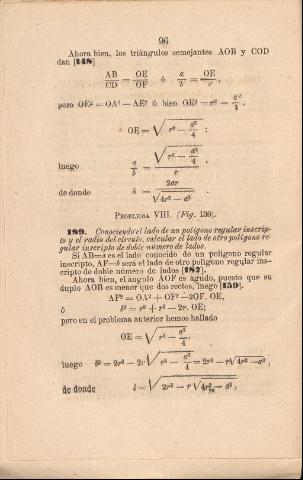 96
Ahora bien, los triángulos semejantes AOB y COD
dan [148]
AB/CD = OE/OF ó a/b = OE/r,
pero OE² = OA² — AE² ó bien OE² = r² — a²/4,
OE = √(r² — a²/4) :
luego a/b = √(r² — a²/4)/r,
de donde b = 2ar/√(4r² — a²) .
PROBLEMA VIII. (Fig. 130).
189. Conociendo el lado de un polígono regular inscrip-
to y el radio del círculo, calcular el lado de otro polígono re-
gular inscripto de doble número de lados.
Si AB=a es el lado conocido de un polígono regular
inscripto, AF=b será el lado de otro polígono regular ins-
cripto de doble número de lados [187].
Ahora bien, el ángulo AOF es agudo, puesto que su
duplo AOB es menor que dos rectos, luego [159].
AF² = OA² + OF² — 2OF. OE,
ó b² = r² + r² — 2r. OE;
pero en el problema anterior hemos hallado
OE = √(r² — a²/4),
luego b² = 2r² — 2r √(r² — a²/4) = 2r² — r√(4r² — a²),
de donde b = √(2r² — r√(4r² — a²)),